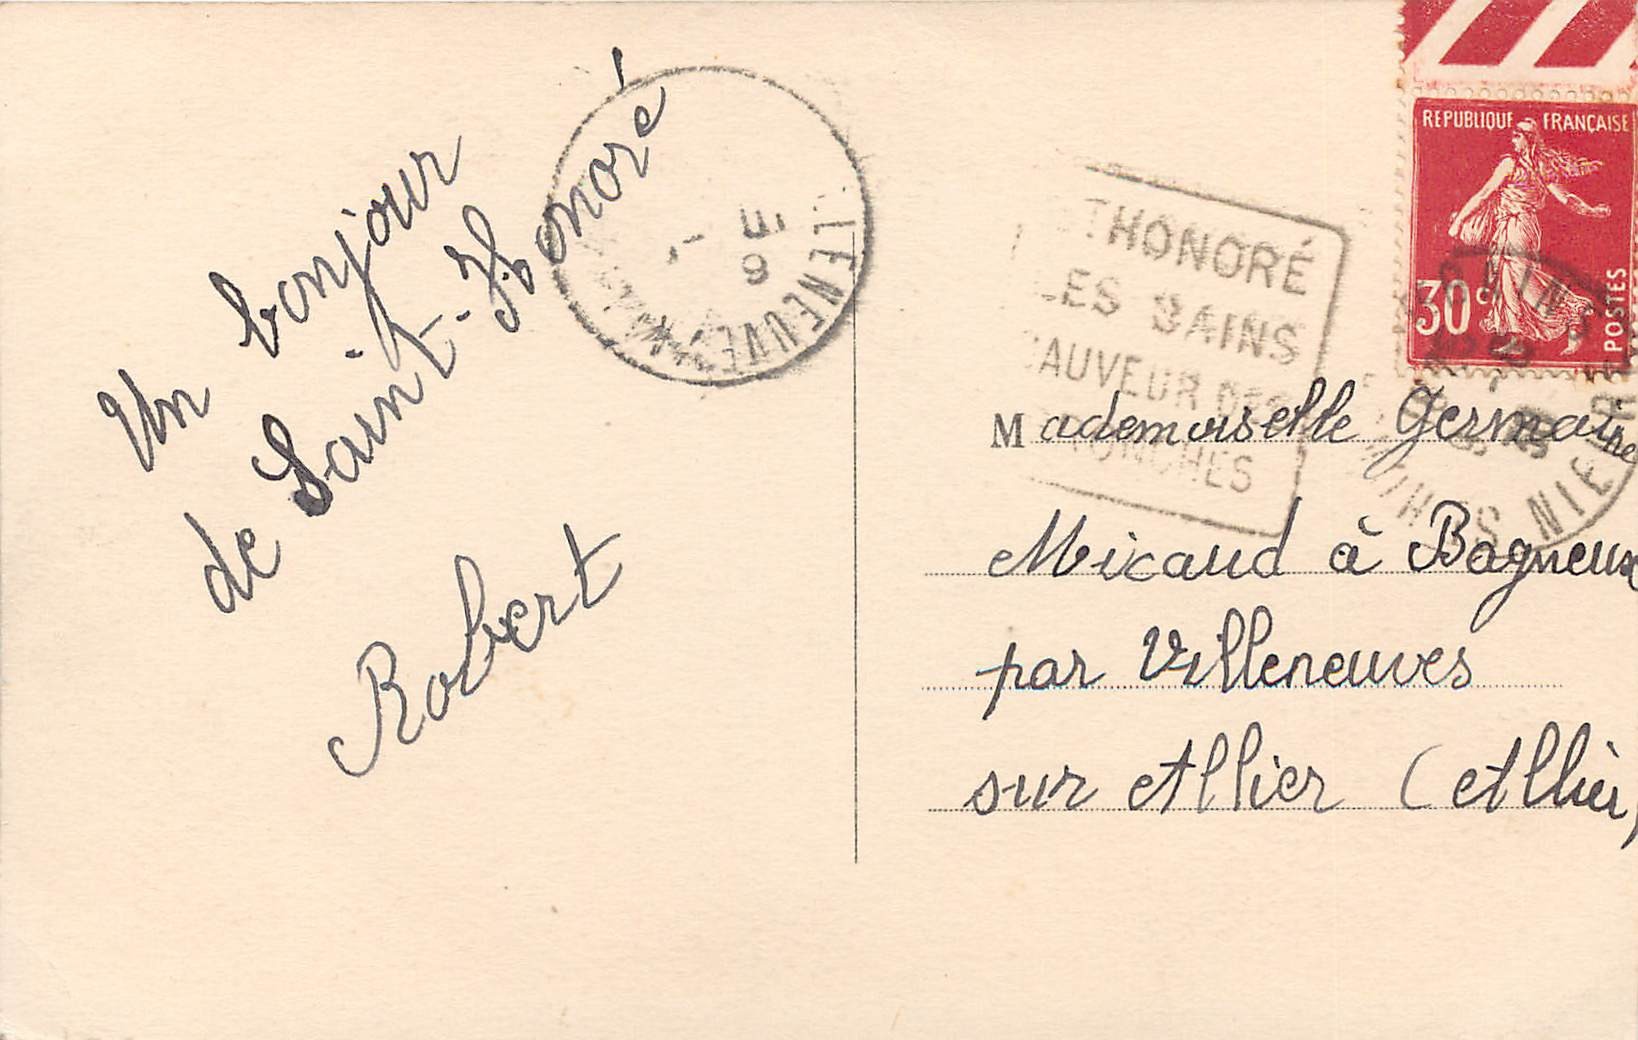 Un bonjour
de Saint-Honoré
Robert
THONORÉ
LES BAINS
AUVEUR DES
RONCHES
REPUBLIQUE FRANÇAISE
30c
POSTES
Mademoiselle Germaine
Micaud à Bagneux
par Villeneuves
sur Allier (Allier)